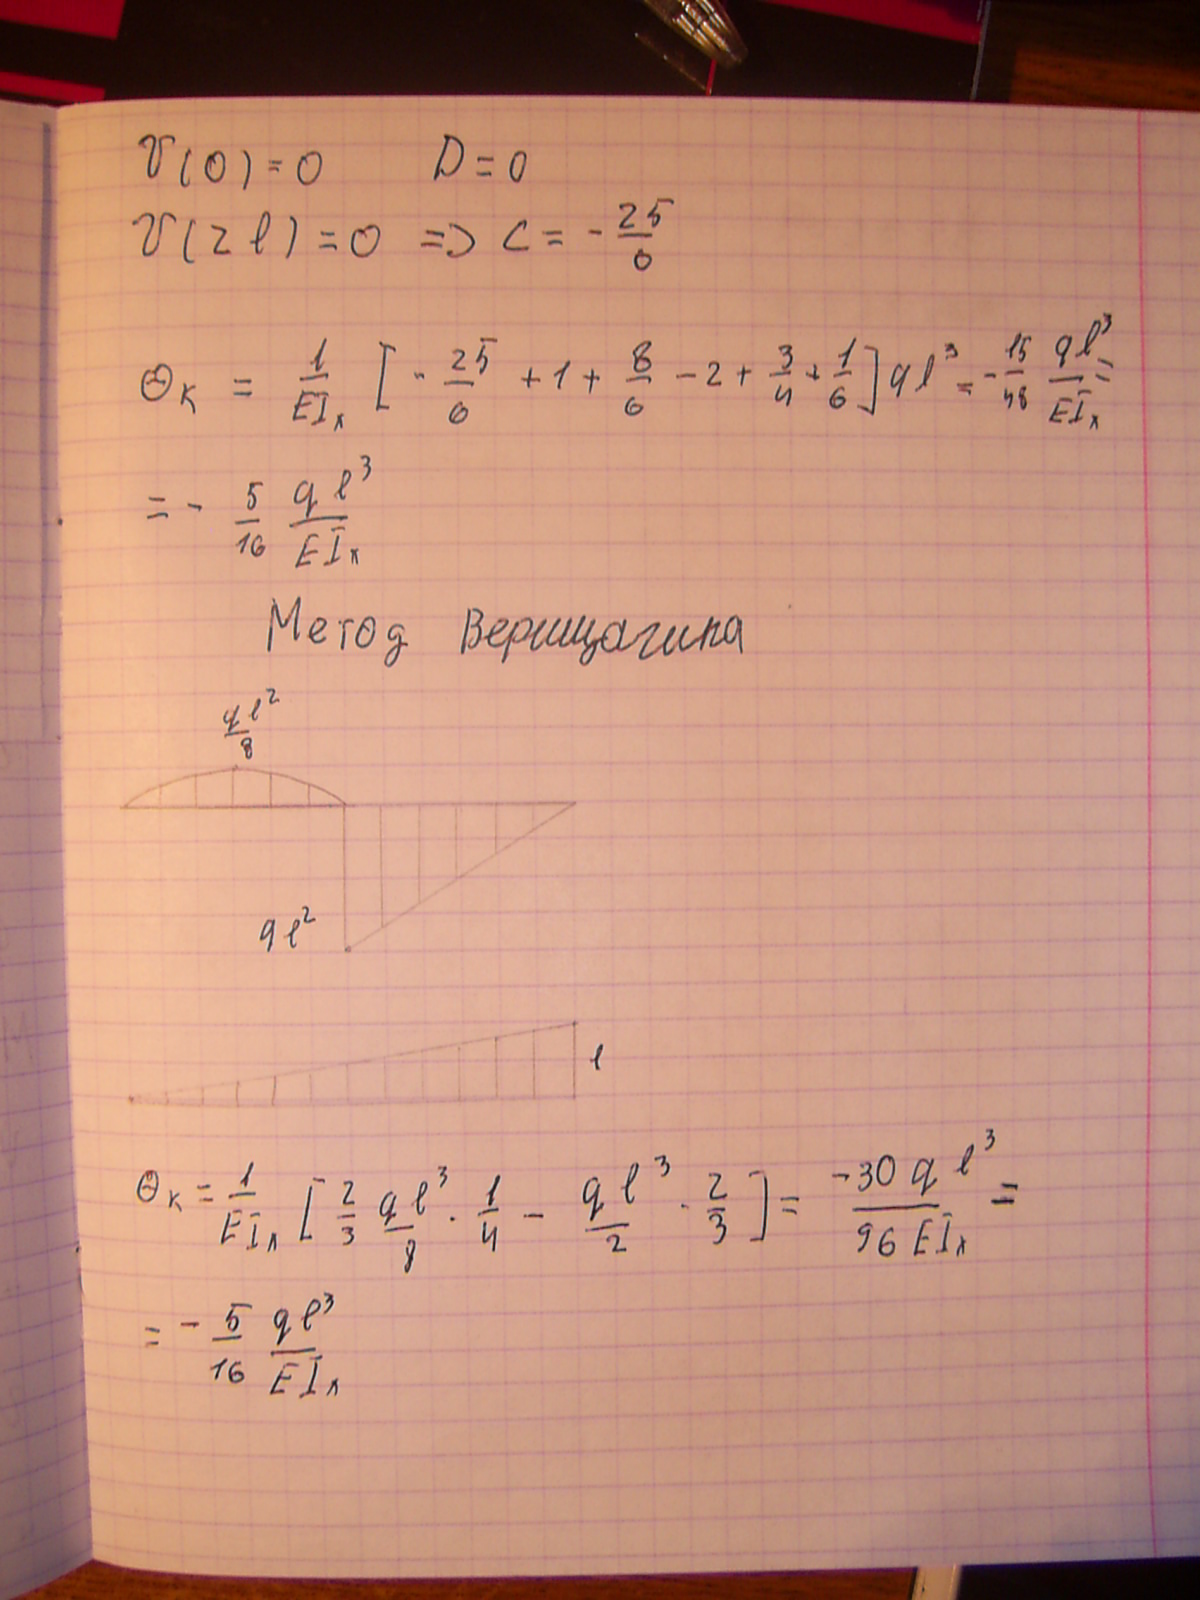 V(0)=0 D=0
V(2l)=0 => C = - 25/6
Θк = 1/EIx [- 25/6 + 1 + 8/6 - 2 + 3/4 + 1/6] ql³ = - 15/48 ql³/EIx =
= - 5/16 ql³/EIx
Метод Верищагина
ql²/8
ql²
l
Θк = 1/EIx [2/3 ql³/8 · 1/4 - ql³/2 · 2/3] = -30ql³/96EIx =
= - 5/16 ql³/EIx